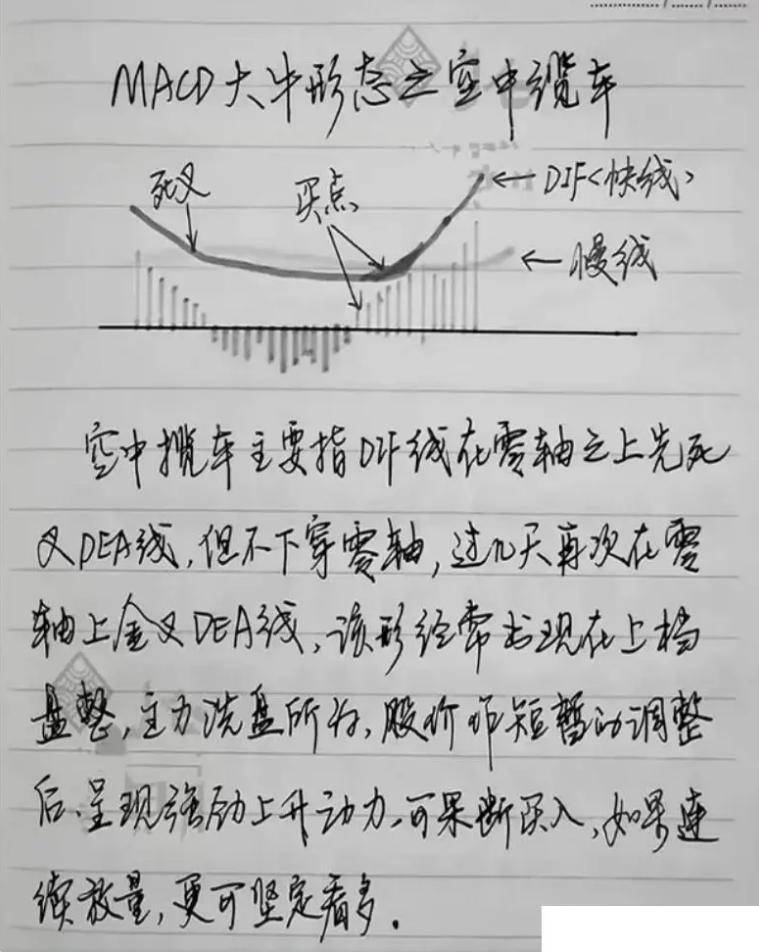 MACD大牛形态之空中缆车
死叉
买点
←DIF<快线>
←慢线
空中揽车主要指DIF线在零轴之上先死
叉DEA线,但不下穿零轴,过几天再次在零
轴上金叉DEA线,该形经常出现在上档
盘整,主力洗盘所为,股价作短暂的调整
后、呈现强劲上升动力,可果断买入,如果连
续放量,更可坚定看多.